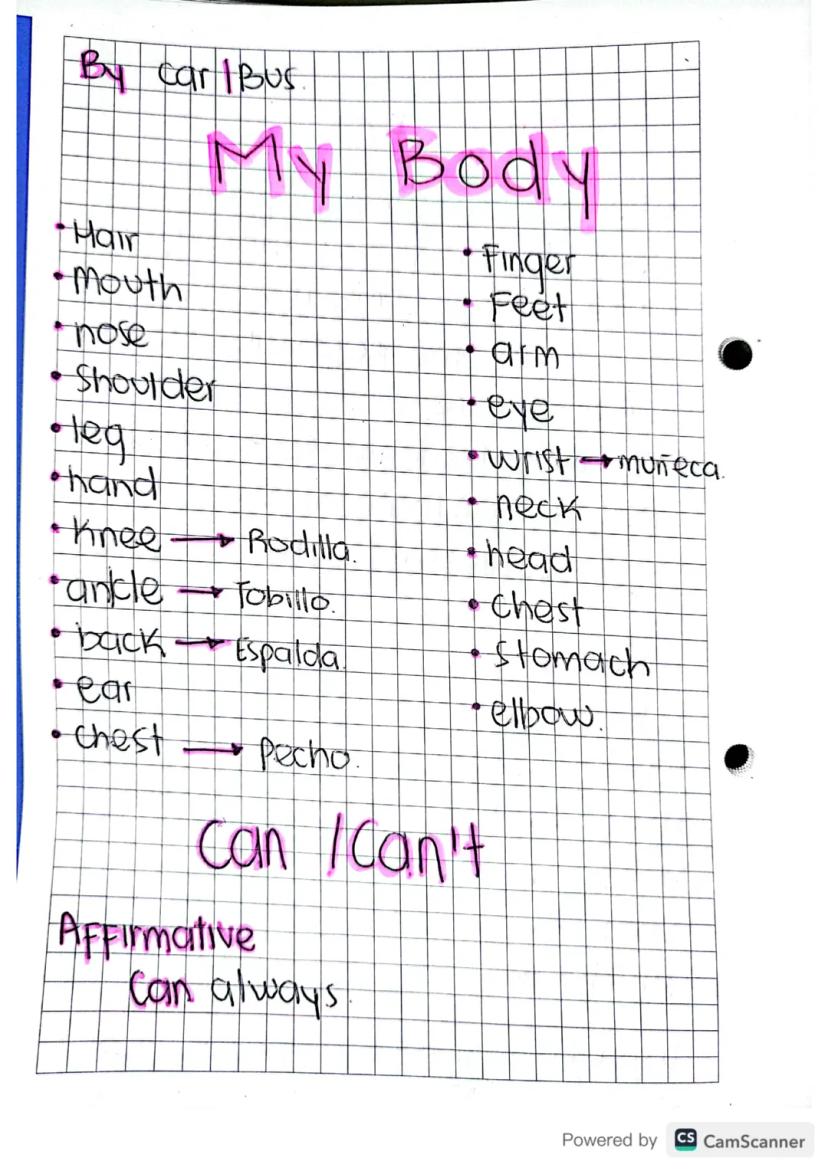 By car/Bus.
My Body
• Hair
• Mouth
• nose
• Shoulder
• leg
• hand
• Knee → Rodilla.
• ankle → Tobillo.
• back → Espalda.
• ear
• chest → Pecho.
• Finger
• Feet
• arm
• eye
• wrist → muñeca.
• neck
• head
• chest
• Stomach
• elbow.
Can / Can't
Affirmative
Can always.
Powered by CS CamScanner